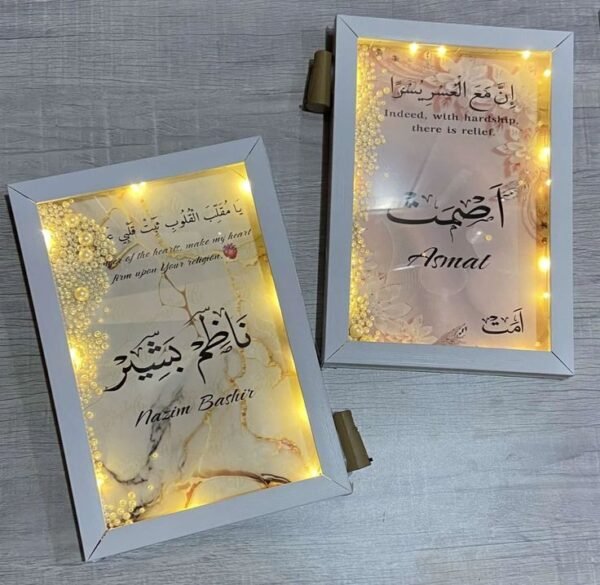 يَا مُقَلِّبَ الْقُلُوبِ ثَبِّتْ قَلْبِي
of the hearts, make my heart
firm upon Your religion.
نَاظِمْ بَشِيْر
Nazim Bashir
إِنَّ مَعَ الْعُسْرِ يُسْرًا
Indeed, with hardship,
there is relief.
اَصْمَت
Asmat